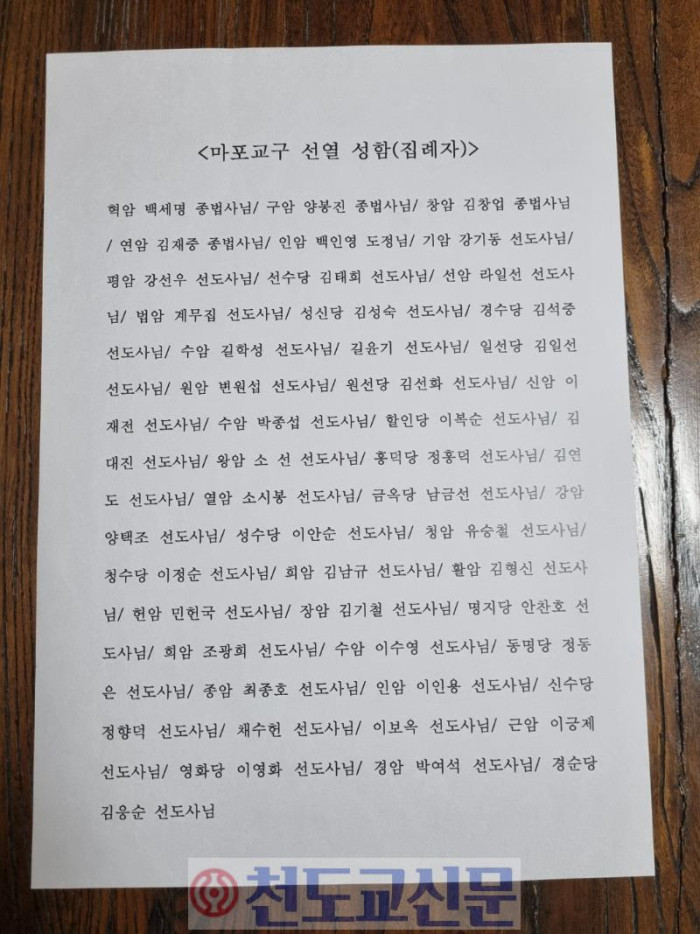 <마포교구 선열 성함(집례자)>
혁암 백세명 종법사님/ 구암 양봉진 종법사님/ 창암 김창업 종법사님
/ 연암 김재중 종법사님/ 인암 백인영 도정님/ 기암 강기동 선도사님/
평암 강선우 선도사님/ 선수당 김태희 선도사님/ 선암 라일선 선도사
님/ 법암 계무집 선도사님/ 성신당 김성숙 선도사님/ 경수당 김석중
선도사님/ 수암 길학성 선도사님/ 길윤기 선도사님/ 일선당 김일선
선도사님/ 원암 변원섭 선도사님/ 원선당 김선화 선도사님/ 신암 이
재전 선도사님/ 수암 박종섭 선도사님/ 할인당 이복순 선도사님/ 김
대진 선도사님/ 왕암 소 선 선도사님/ 홍덕당 정홍덕 선도사님/ 김연
도 선도사님/ 열암 소시봉 선도사님/ 금옥당 남금선 선도사님/ 강암
양택조 선도사님/ 성수당 이안순 선도사님/ 청암 유승철 선도사님/
청수당 이정순 선도사님/ 희암 김남규 선도사님/ 활암 김형신 선도사
님/ 헌암 민헌국 선도사님/ 장암 김기철 선도사님/ 명지당 안찬호 선
도사님/ 희암 조광희 선도사님/ 수암 이수영 선도사님/ 동명당 정동
은 선도사님/ 종암 최종호 선도사님/ 인암 이인용 선도사님/ 신수당
정향덕 선도사님/ 채수헌 선도사님/ 이보옥 선도사님/ 근암 이긍제
선도사님/ 영화당 이영화 선도사님/ 경암 박여석 선도사님/ 경순당
김응순 선도사님
천도교신문